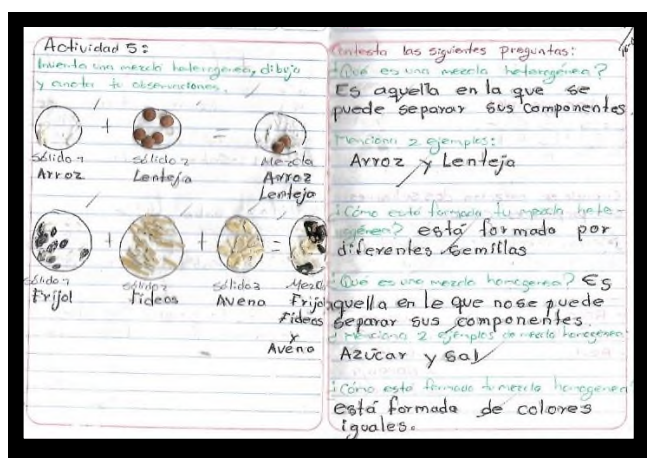 Actividad 5:
Inventa una mezcla heterogénea, dibuja
y anota tu observaciones.
Sólido 1
Arroz
+
Sólido 2
Lenteja
=
Mezcla
Arroz
Lenteja
Sólido 1
Frijol
+
Sólido 2
Fideos
+
Sólido 3
Avena
=
Mezcla
Frijol
Fideos
y
Avena
Contesta las siguientes preguntas:
¿Qué es una mezcla heterogénea?
Es aquella en la que se
puede separar sus componentes.
Menciona 2 ejemplos:
Arroz y Lenteja
¿Cómo está formada tu mezcla hete-
rogénea? está formado por
diferentes semillas
¿Qué es una mezcla homogenea? Es
aquella en le que nose puede
separar sus componentes.
Menciona 2 ejemplos de mezcla homogenea
Azúcar y sal
¿Cómo está formada tu mezcla homogenea
está formada de colores
iguales.